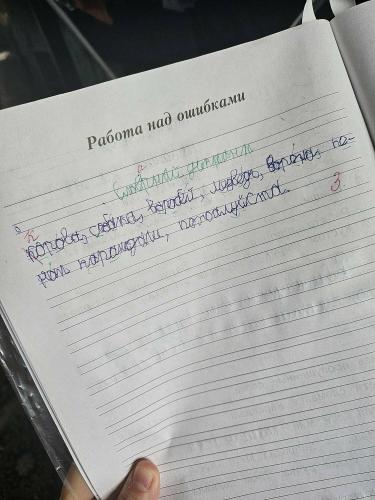 Работа над ошибками
Словарный диктант
корова, собака, воробей, медведь, ворона, на-
карандаш, пожалуйста. 3